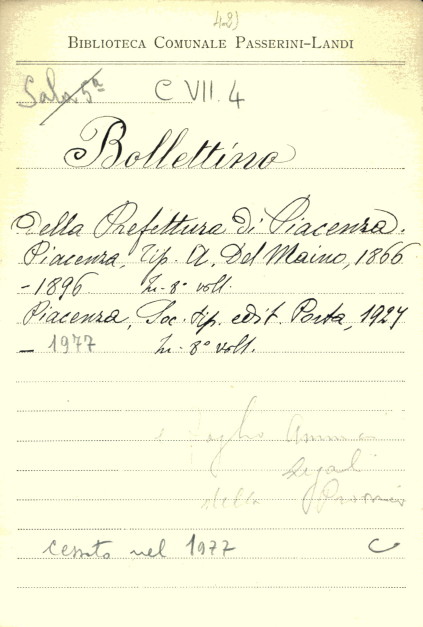 42)
BIBLIOTECA COMUNALE PASSERINI-LANDI
Sala 5ª C VII. 4
Bollettino
della Prefettura di Piacenza.
Piacenza, Tip. A. Del Maino, 1866
-1896 In-8° voll.
Piacenza, Soc. tip. edit. Porta, 1924
- 1977 In-8° voll.
e foglio Annunci
Legali
della Provincia
Cessato nel 1977 C